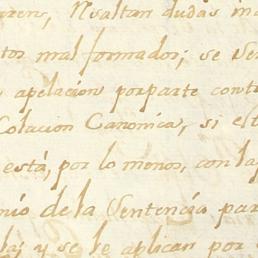 resultan dudas
mal formados; se
apelacion por parte
Colacion Canonica, si el
està, por lo menos, con la
de la Sentencia par
y se le aplican por